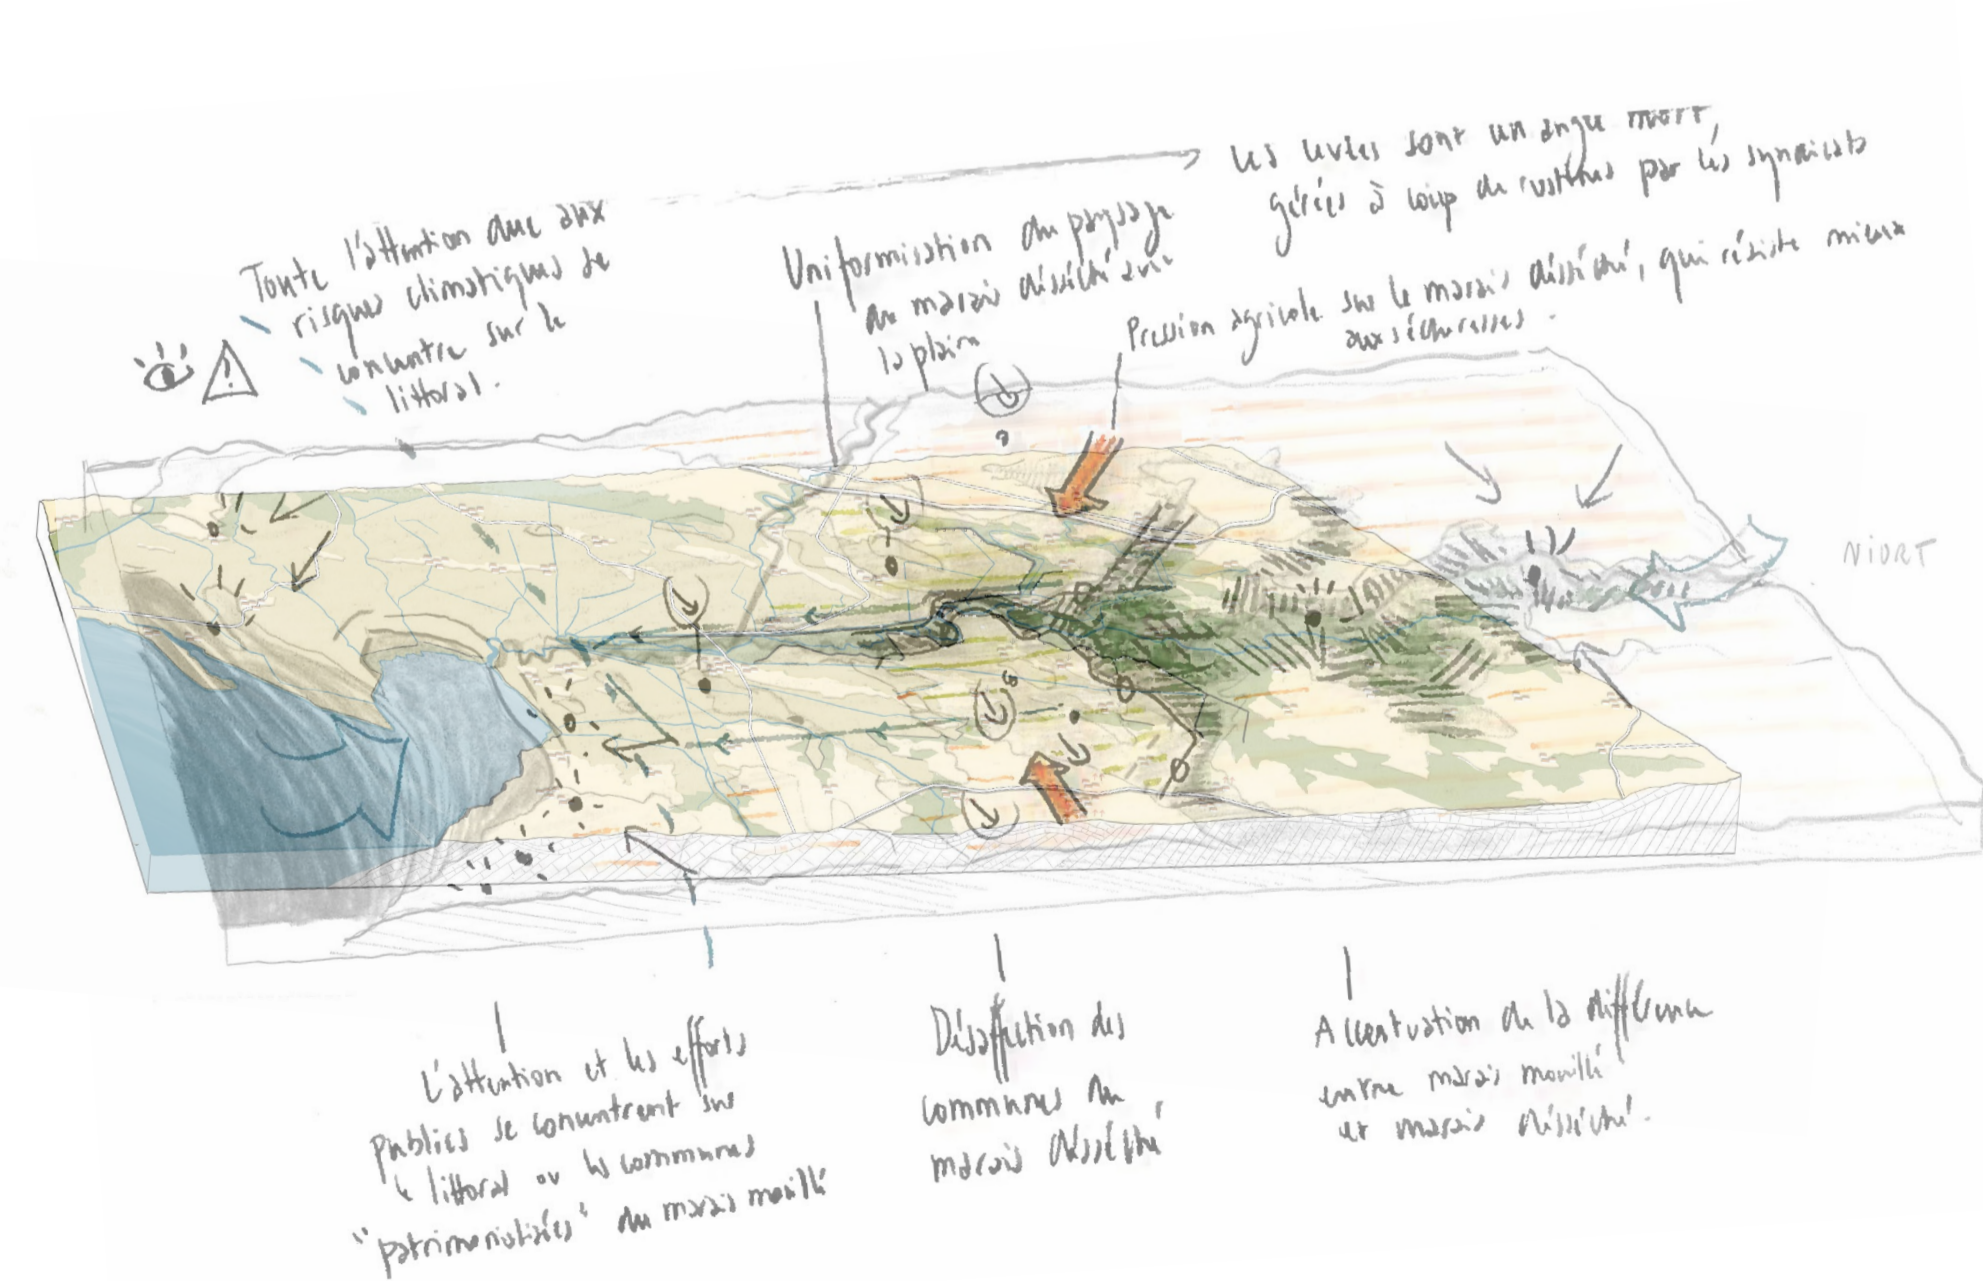 Toute l'attention due aux
risques climatiques se
concentre sur le
littoral.
Uniformisation du paysage
du marais désséché avec
la plaine
Les levées sont un angle mort,
gérées à coup de rustines par les syndicats
Pression agricole sur le marais désséché, qui résiste mieux
aux sécheresses.
NIORT
L'attention et les efforts
publics se concentrent sur
le littoral ou les communes
"patrimonialisées" du marais mouillé
Désaffection des
communes du
marais désséché
Accentuation de la différence
entre marais mouillé
et marais désséché.